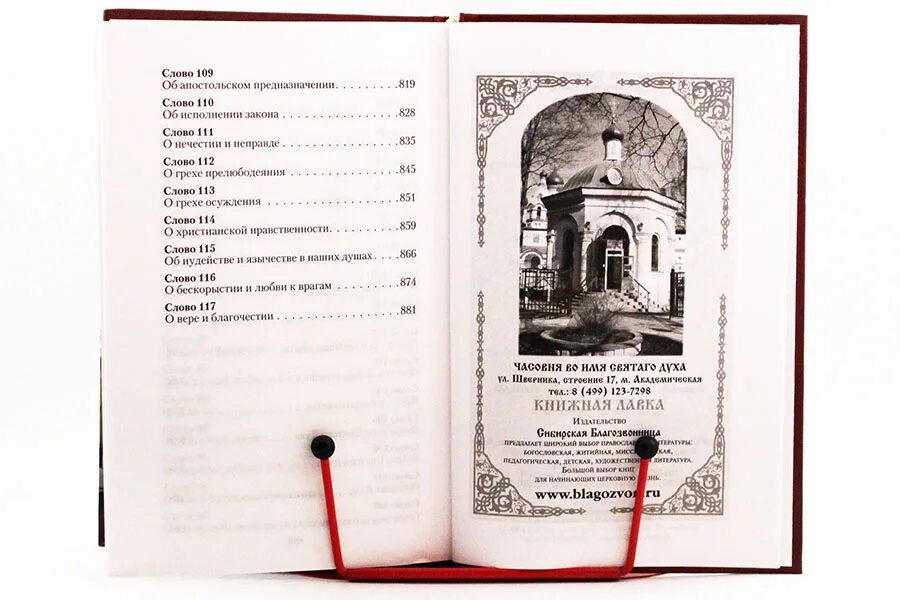 Слово 109
Об апостольском предназначении. . . . . . . . .819
Слово 110
Об исполнении закона . . . . . . . . . . . . . . . . .828
Слово 111
О нечестии и неправде . . . . . . . . . . . . . . . . .835
Слово 112
О грехе прелюбодеяния . . . . . . . . . . . . . . . .845
Слово 113
О грехе осуждения . . . . . . . . . . . . . . . . . . .851
Слово 114
О христианской нравственности. . . . . . . . . .859
Слово 115
Об иудействе и язычестве в наших душах. . . .866
Слово 116
О бескорыстии и любви к врагам . . . . . . . . .874
Слово 117
О вере и благочестии . . . . . . . . . . . . . . . . . .881
ЧАСОВНЯ ВО ИМЯ СВЯТАГО ДУХА
ул. Шверника, строение 17, м. Академическая
тел.: 8 (499) 123-7298
КНИЖНАЯ ЛАВКА
Издательство
Сибирская Благозвонница
предлагает широкий выбор литературы:
богословская, житийная,
педагогическая, детская, литература.
Большой выбор книг
для начинающих церковную
www.blagozvon.ru